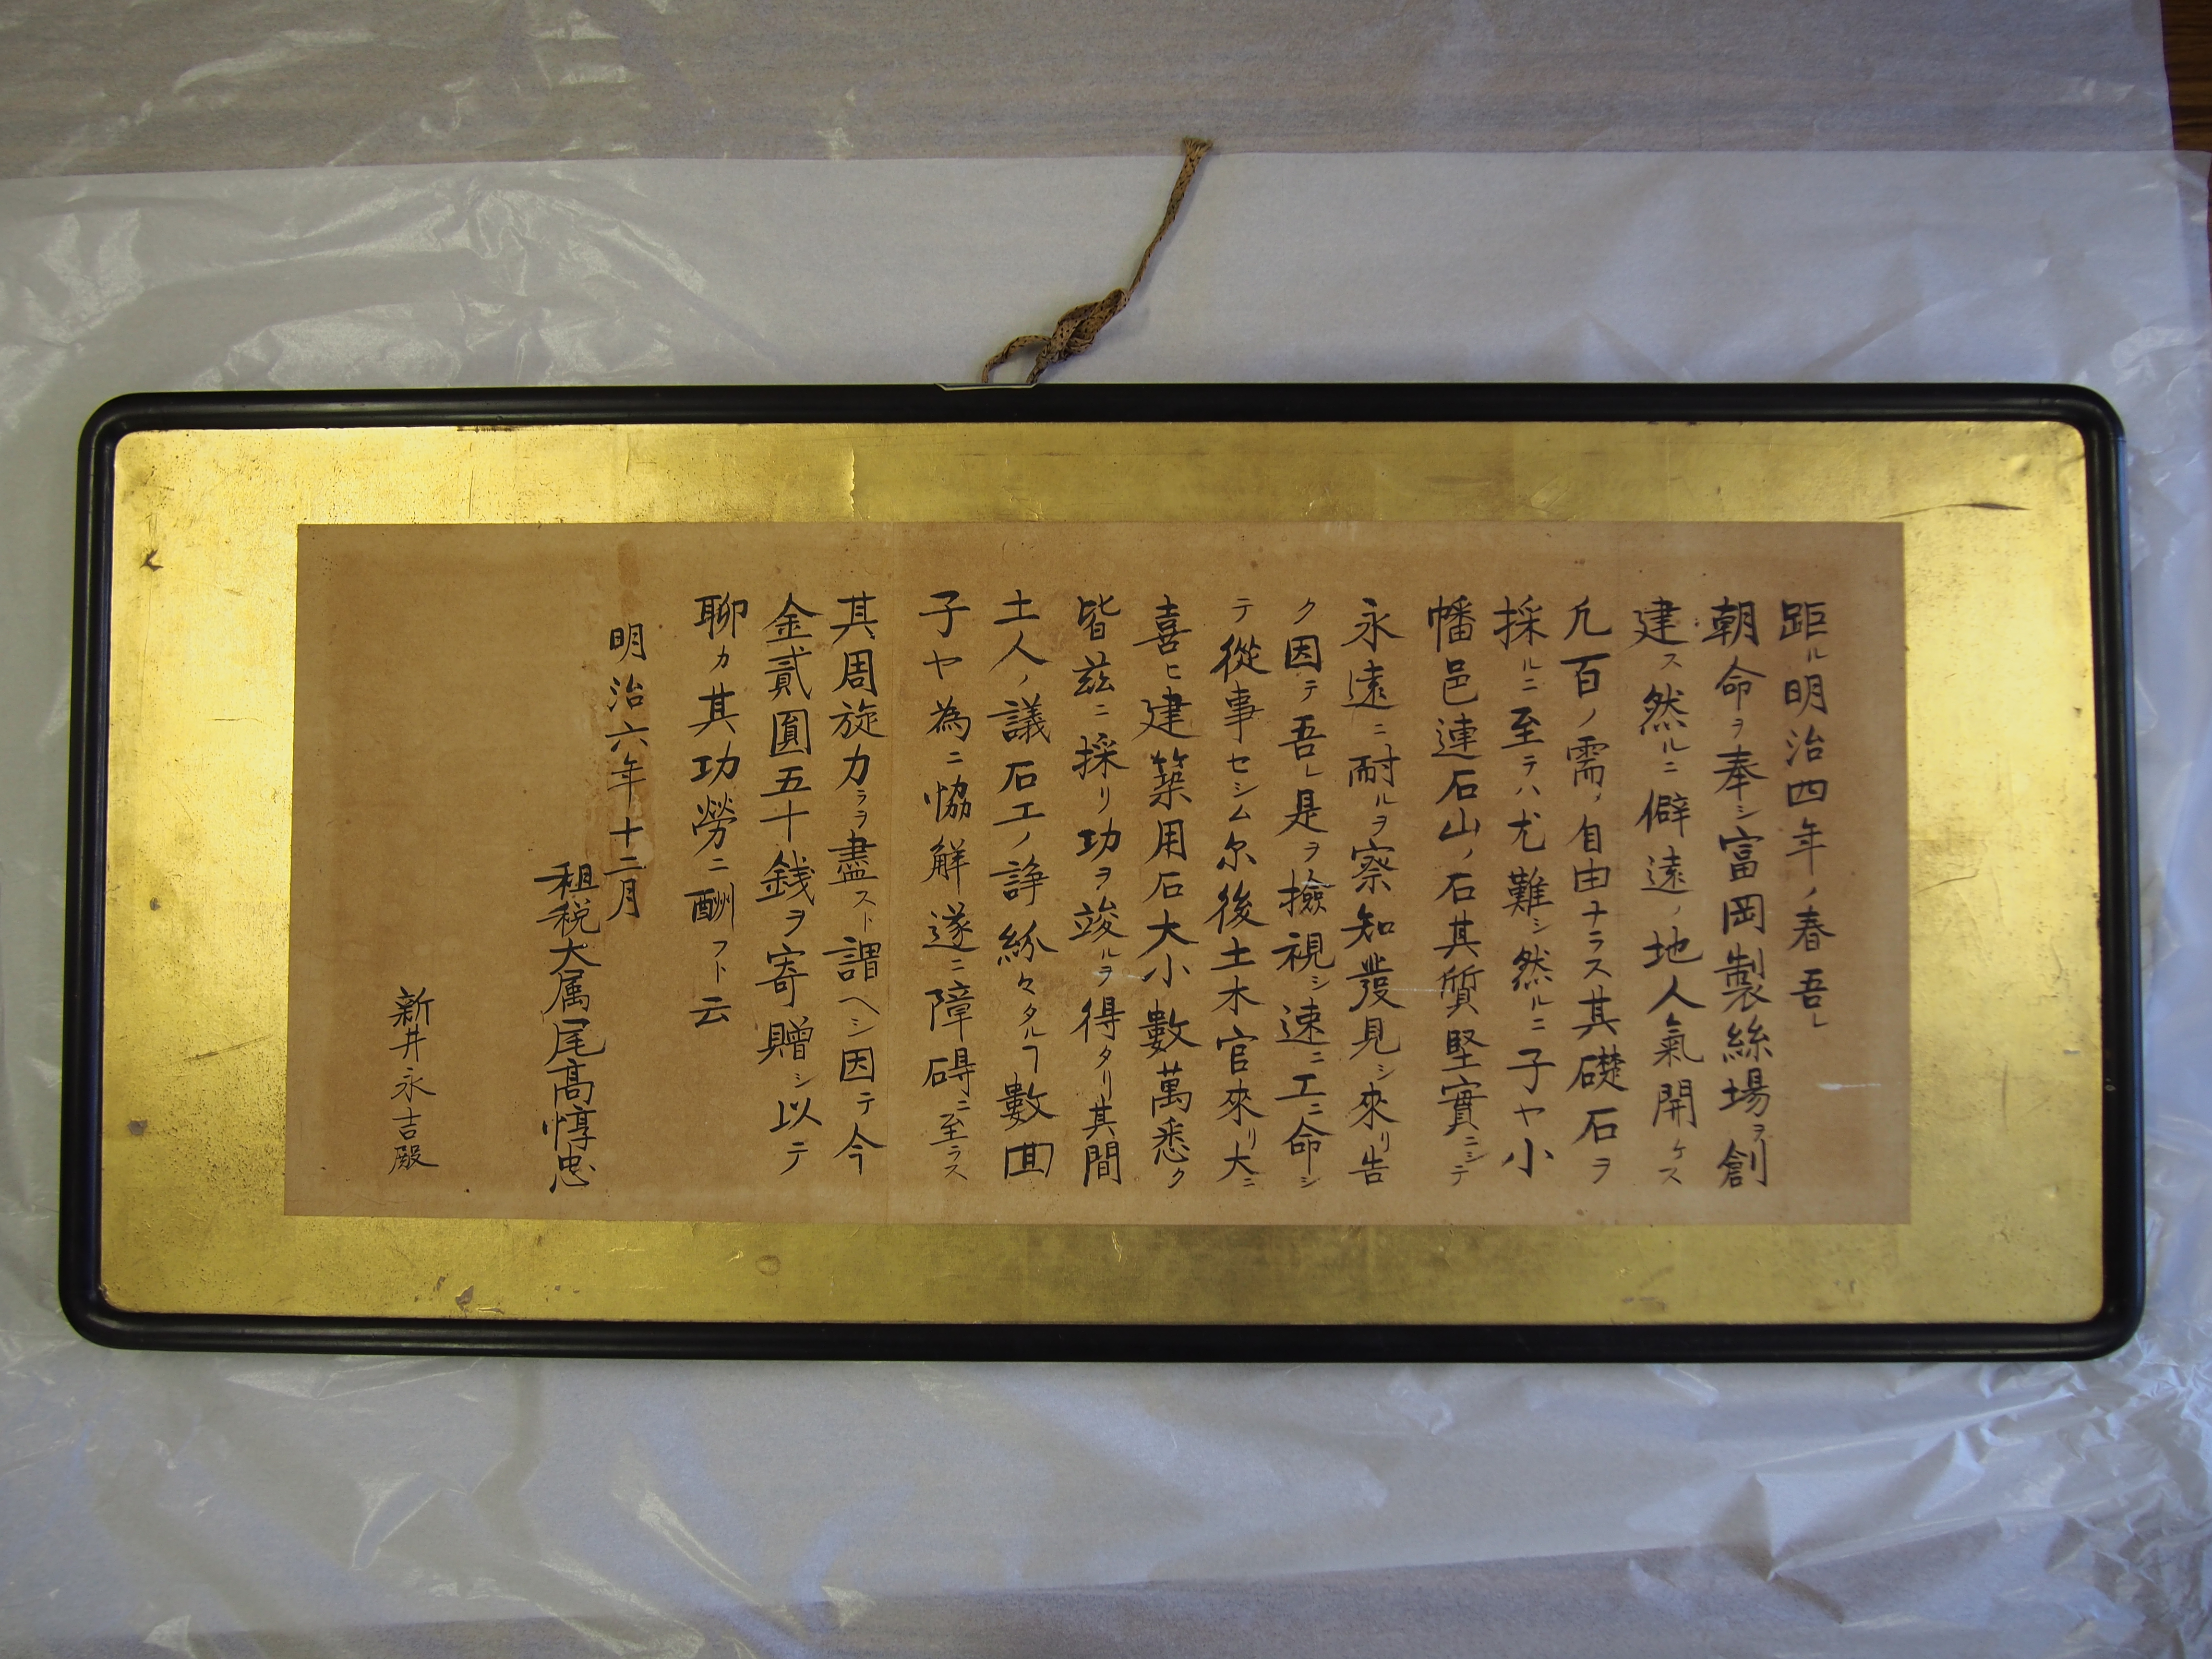 距ル明治四年ノ春吾レ
朝命ヲ奉シ富岡製絲場ヲ創
建ス然ルニ僻遠ノ地人氣開ケス
凢百ノ需メ自由ナラス其礎石ヲ
採ルニ至テハ尤難シ然ルニ子ヤ小
幡邑連石山ノ石其質堅實ニシテ
永遠ニ耐ルヲ察知發見シ來リ告
ク因テ吾レ是ヲ撿視シ速ニ工ニ命シ
テ從事セシム尓後土木官來リ大ニ
喜ヒ建築用石大小數萬悉ク
皆茲ニ採リ功ヲ竣ルヲ得タリ其間
土人ノ議石工ノ諍紛々タルヿ數回
子ヤ為ニ恊解遂ニ障碍ニ至ラス
其周旋力ラヲ盡スト謂ヘシ因テ今
金貳圓五十銭ヲ寄贈シ以テ
聊カ其功勞ニ酬フト云
明治六年十二月
租税大属尾高惇忠
新井永吉殿